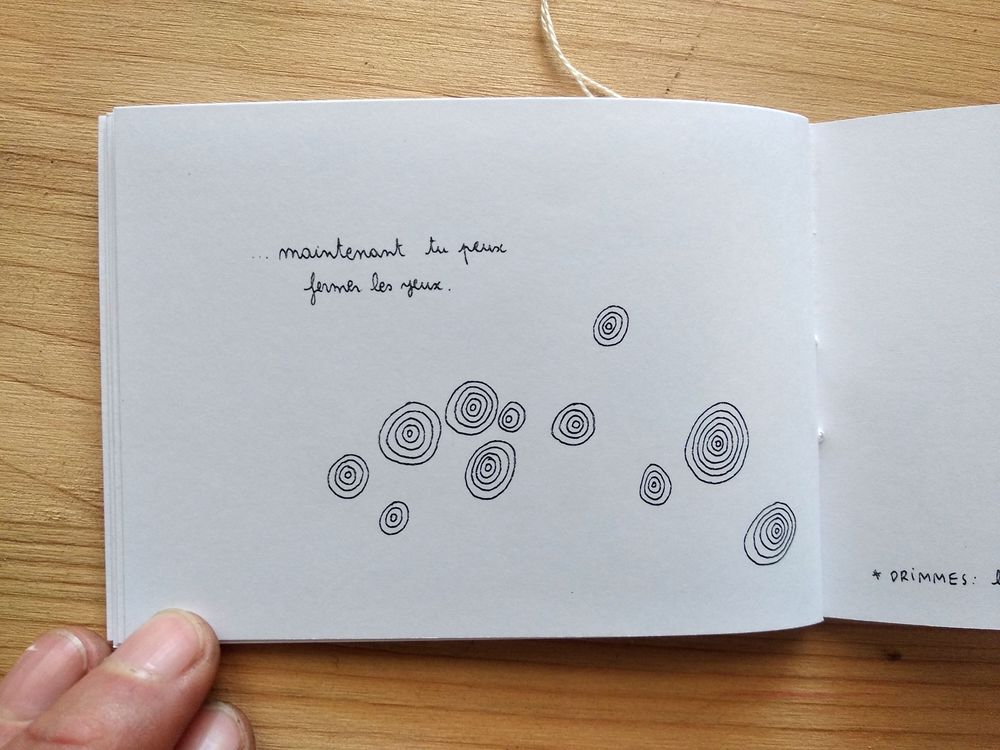 ... maintenant tu peux
fermer les yeux.
* DRIMMES: